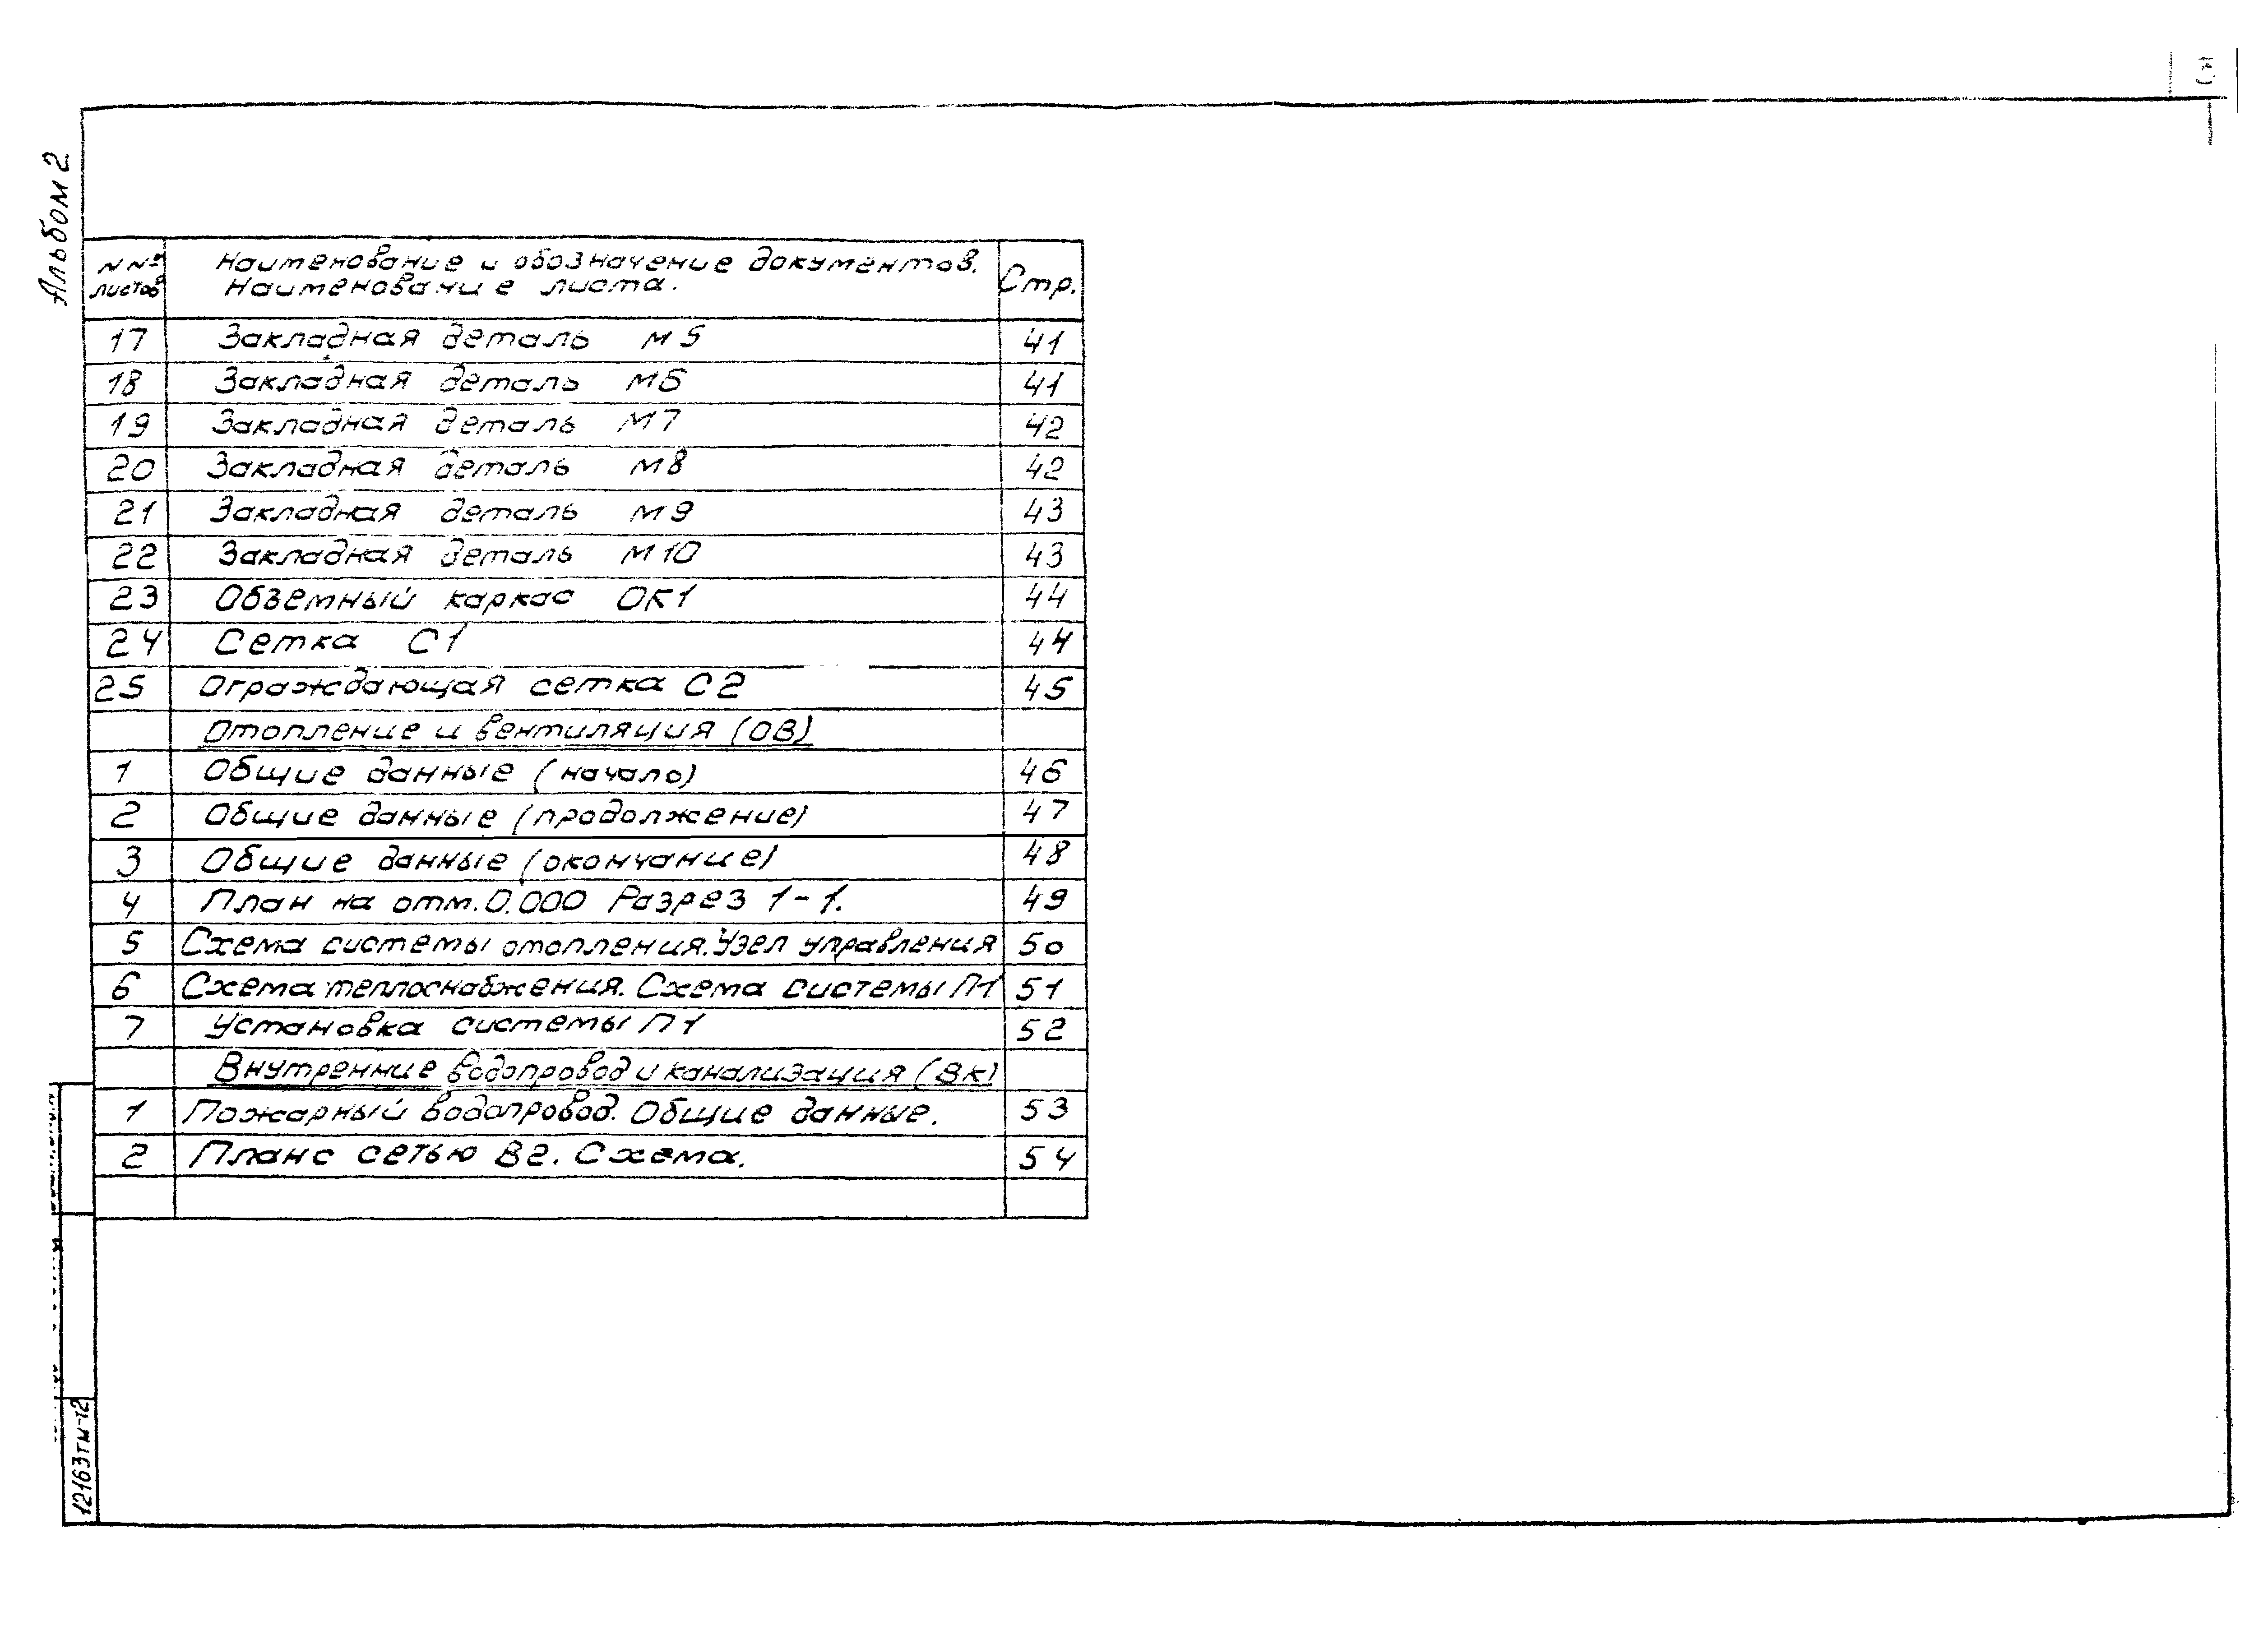 3
Альбом 2
NN° листов
Наименование и обозначение документов.
Наименование листа.
Стр.
17 Закладная деталь М5 41
18 Закладная деталь М6 41
19 Закладная деталь М7 42
20 Закладная деталь М8 42
21 Закладная деталь М9 43
22 Закладная деталь М10 43
23 Объемный каркас ОК1 44
24 Сетка С1 44
25 Ограждающая сетка С2 45
Отопление и вентиляция (ОВ)
1 Общие данные (начало) 46
2 Общие данные (продолжение) 47
3 Общие данные (окончание) 48
4 План на отм. 0.000 Разрез 1-1. 49
5 Схема системы отопления. Узел управления 50
6 Схема теплоснабжения. Схема системы П1 51
7 Установка системы П1 52
Внутренние водопровод и канализация (ВК)
1 Пожарный водопровод. Общие данные. 53
2 План с сетью В2. Схема. 54
12163тм-т2